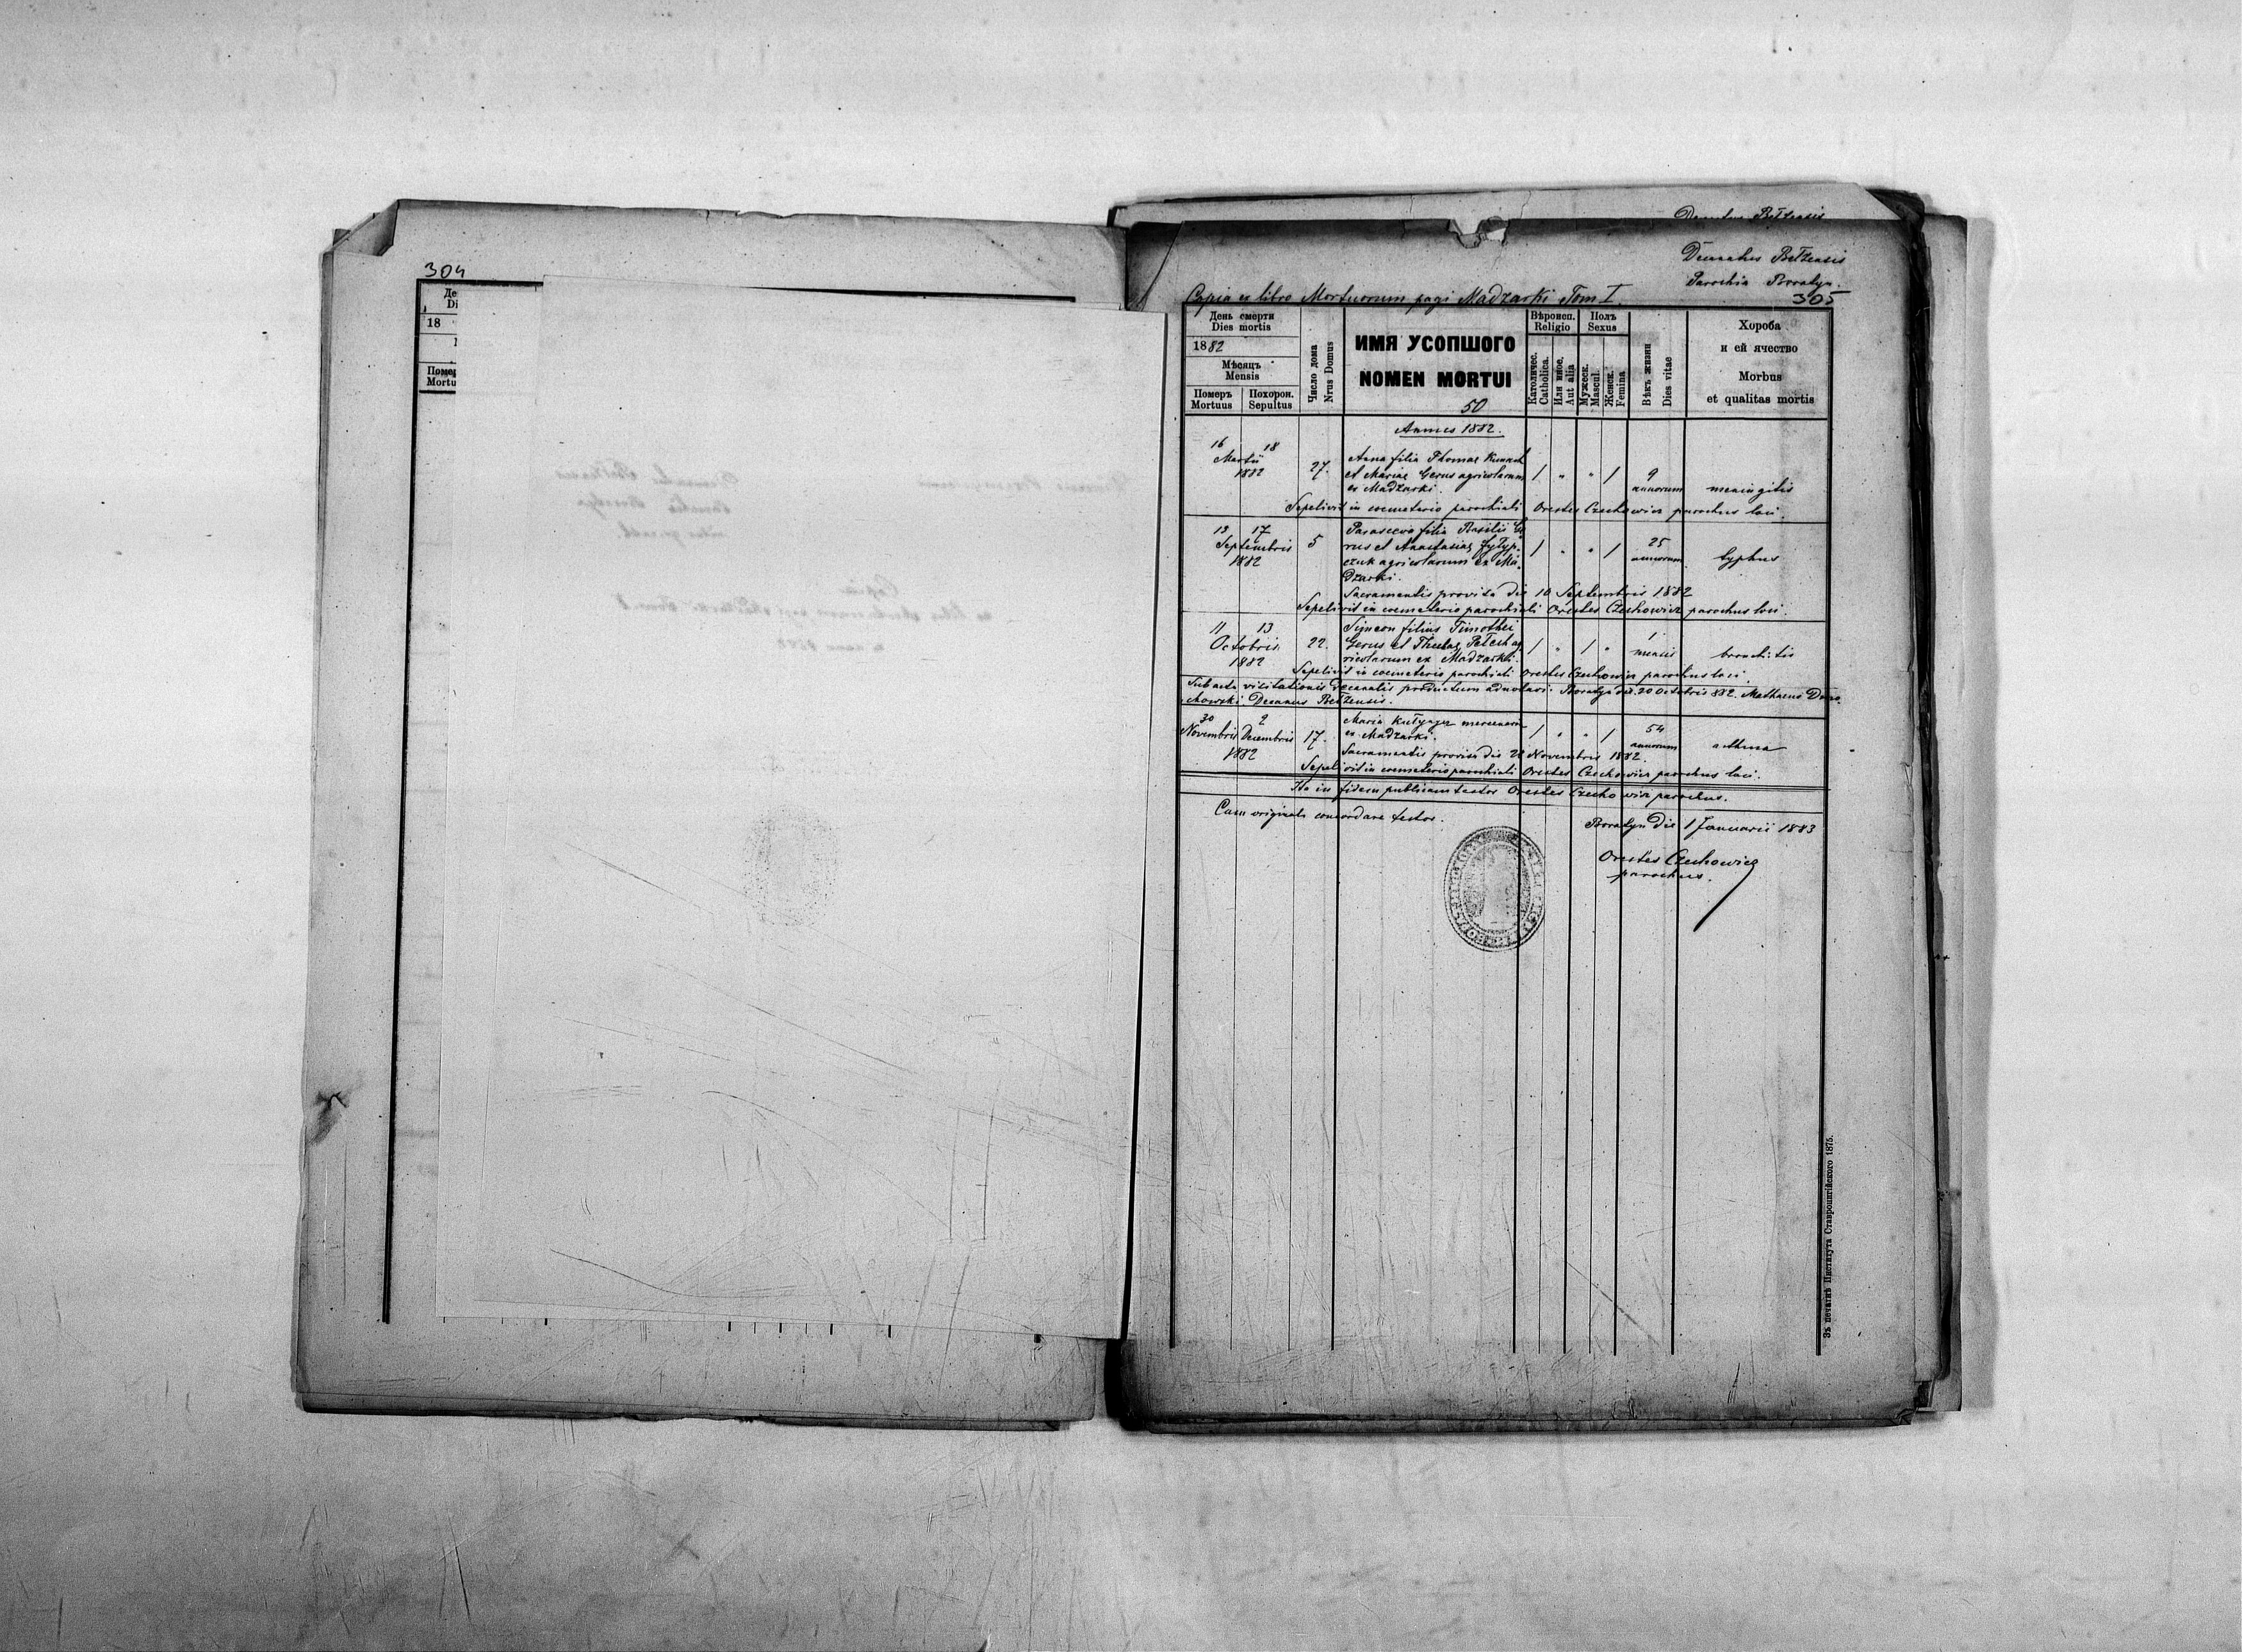 304
Де
Di
18
1
Помер
Mortu
Decanatus Bełzensis
Decanatus Bełzensis
Parochia Boratyn.
Copia ex libro Mortuorum pagi Madzarki Tom I.
305
День смерти
Dies mortis
1882
Мѣсяць
Mensis
Померъ
Mortuus
Похорон.
Sepultus
Число дома
Nrus Domus
ИМЯ УСОПШОГО
NOMEN MORTUI
50
Вѣроисп.
Religio
Католичес.
Catholica.
Или иное.
Aut alia
Полъ
Sexus
Мужеск.
Mascul.
Женск.
Femina
Вѣкъ жизни
Dies vitae
Хороба
и ей ячество
Morbus
et qualitas mortis
Annus 1882.
16 18
Martii
1882
27.
Anna filia Thomae
et Mariae Gerus agricolarum
ex Madzarki.
/ " " /
9
annorum
meningitis
Sepelivit in coemeterio parochiali Orestes Czechowicz parochus loci.
13 17
Septembris
1882
5
Parasceva filia Basilii Ge
rus et Anastasiae
czuk agricolarum ex Ma
dzarki.
/ " " /
25
annorum
typhus
Sacramentis provisa die 10 Septembris 1882
Sepelivit in coemeterio parochiali Orestes Czechowicz parochus loci.
11 13
Octobris
1882
22.
Simeon filius Timothei
Gerus et Theclae Pełech ag
ricolarum ex Madzarki.
/ " / "
1
mensis
bronchitis
Sepelivit in coemeterio parochiali Orestes Czechowicz parochus loci.
Sub actu visitationis decanalis productum adnotavi. Boratyn die 20 Octobris 882. Mathaeus Dmo
chowski Decanus Bełzensis.
30 2
Novembris Decembris
1882
17.
Maria mercenaria
ex Madzarki.
/ " " /
54
annorum
asthma
Sacramentis provisa die 22 Novembris 1882.
Sepelivit in coemeterio parochiali Orestes Czechowicz parochus loci.
Ita in fidem publicam testor Orestes Czechowicz parochus.
Cum originali concordare testor.
Boratyn die 1 Januarii 1883
Orestes Czechowicz
parochus.
Зъ печатнѣ Института Ставропигійского 1875.